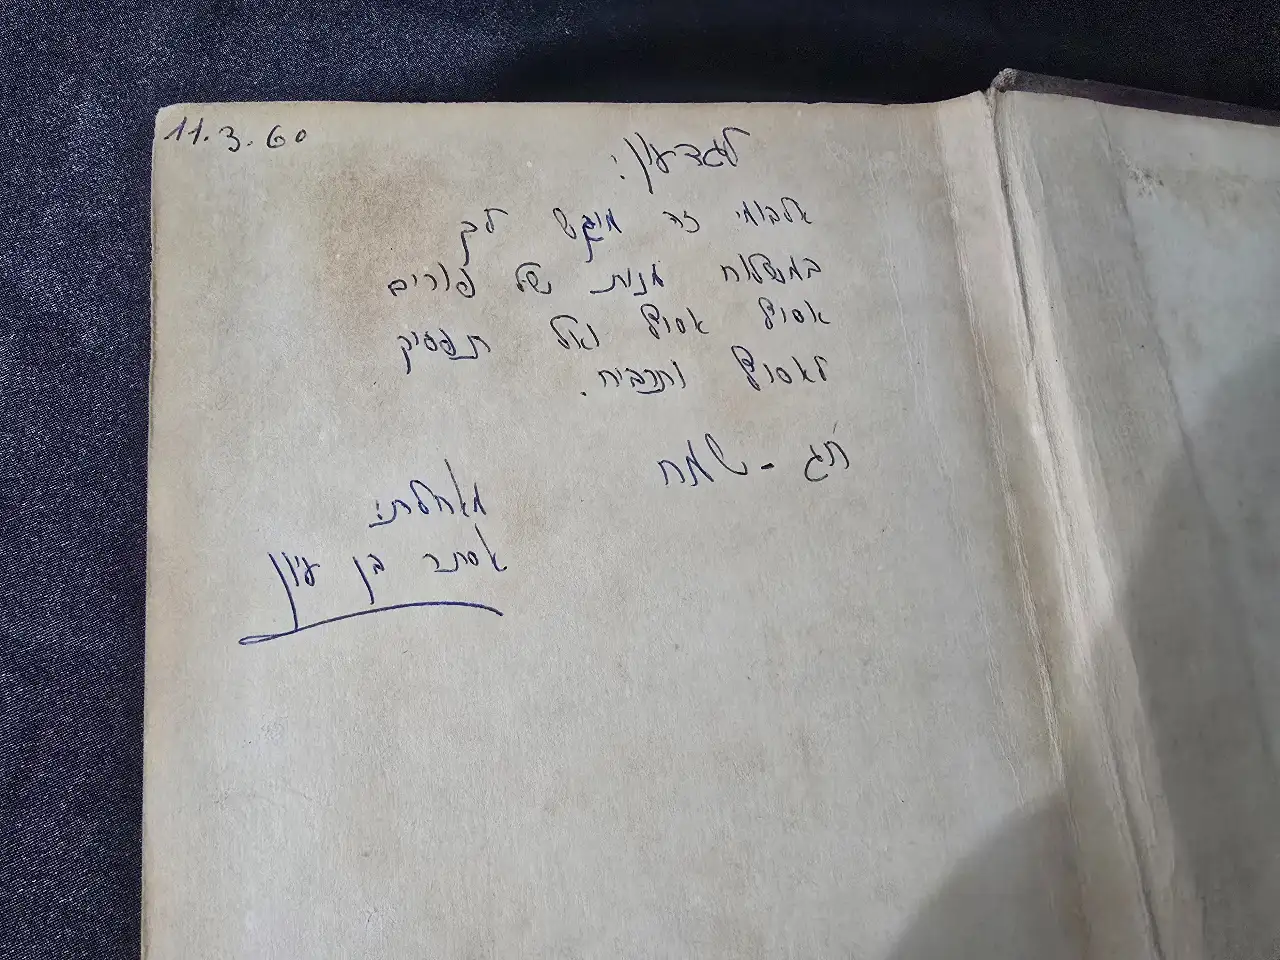 11.3.60
לגדעון:
אלבומי זה מוגש לך
במשלוח מנות של פורים
אסוף אסוף ואל תפסיק
לאסוף ותרביח.
חג - שמח
מאחלת:
אסתר בן עיון